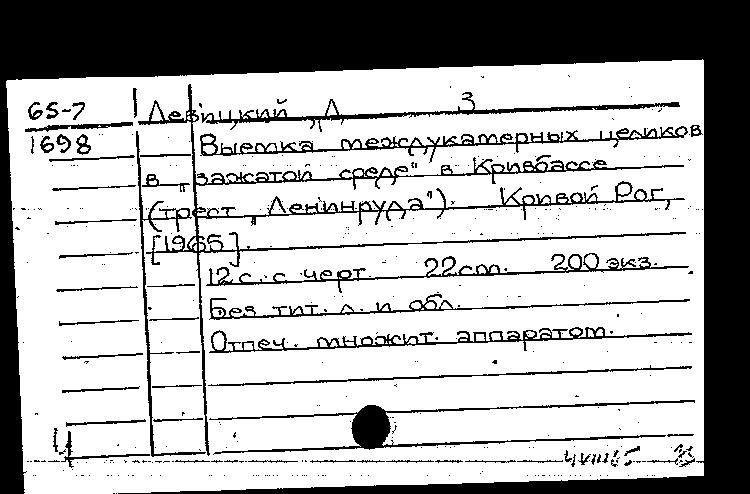 65-7 Левицкий, Д. З
1698 Выемка междукамерных целиков
в „зажатой среде" в Кривбассе
(трест „Ленинруда"). Кривой Рог,
[1965].
12 с. с черт. 22 cm. 200 экз.
Без тит. л. и обл.
Отпеч. множит. аппаратом.
4 VIII 65